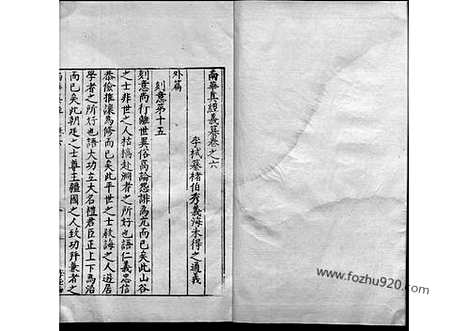 南華真經義纂卷之六
李栻纂褚伯秀義海未得之遺義
外篇
刻意第十五
刻意尚行離世異俗高論怨誹為亢而已矣此山谷
之士非世之人枯槁赴淵者之所好也語仁義忠信
恭儉推讓為修而已矣此平世之士教誨之人遊居
學者之所好也語大功立大名禮君臣正上下為治
而已矣此朝廷之士尊主彊國之人致功并兼者之
www.fozhu920.com